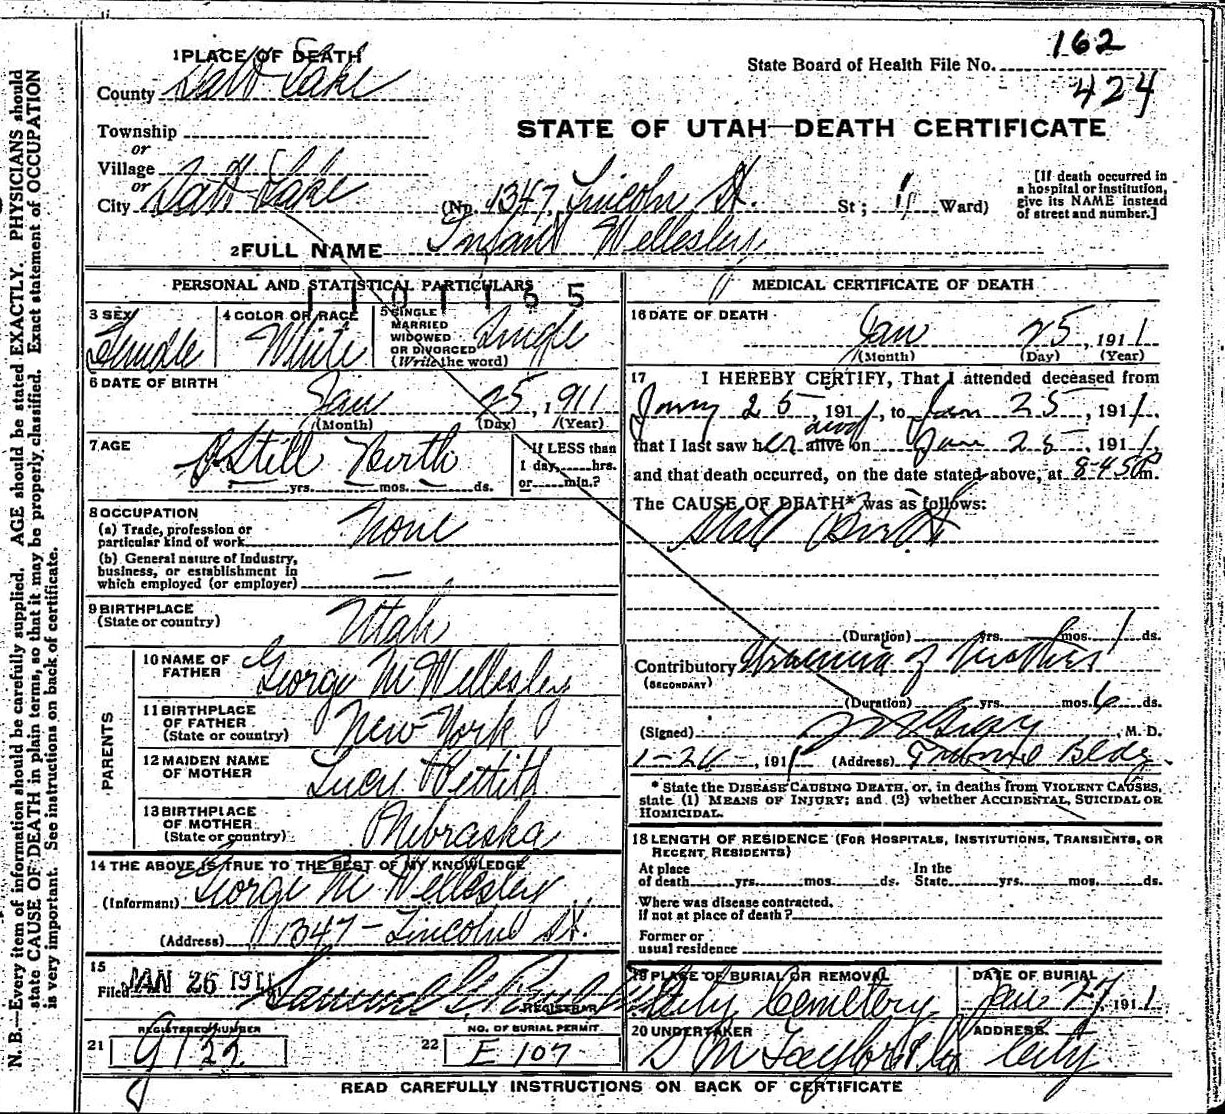 162
1 PLACE OF DEATH
State Board of Health File No.
424
County Salt Lake
STATE OF UTAH—DEATH CERTIFICATE
Township
or
Village
or
City Salt Lake (No. 1347, Lincoln St. St; Ward)
[If death occurred in
a hospital or institution,
give its NAME instead
of street and number.]
2 FULL NAME Infant Wellesley
PERSONAL AND STATISTICAL PARTICULARS
1101165
3 SEX Female
4 COLOR OR RACE White
5 SINGLE
MARRIED
WIDOWED
OR DIVORCED
(Write the word) Single
6 DATE OF BIRTH
Jan 25, 1911
(Month) (Day) (Year)
7 AGE Still Birth
yrs. mos. ds.
If LESS than
1 day, hrs.
or min.?
8 OCCUPATION None
(a) Trade, profession or
particular kind of work
(b) General nature of Industry,
business, or establishment in
which employed (or employer) —
9 BIRTHPLACE
(State or country) Utah
PARENTS
10 NAME OF
FATHER George M Wellesley
11 BIRTHPLACE
OF FATHER
(State or country) New York
12 MAIDEN NAME
OF MOTHER Lucy
13 BIRTHPLACE
OF MOTHER
(State or country) Nebraska
14 THE ABOVE IS TRUE TO THE BEST OF MY KNOWLEDGE
(Informant) George M Wellesley
(Address) 1347 - Lincoln St.
15
Filed JAN 26 1911 Samuel G. REGISTRAR
REGISTERED NUMBER
21 9122
NO. OF BURIAL PERMIT
22 E 107
MEDICAL CERTIFICATE OF DEATH
16 DATE OF DEATH
Jan 25, 1911
(Month) (Day) (Year)
17 I HEREBY CERTIFY, That I attended deceased from
25, 1911, to Jan 25, 1911,
that I last saw her alive on Jan 25, 1911,
and that death occurred, on the date stated above, at 8-45 P m.
The CAUSE OF DEATH* was as follows:
Still Birth
(Duration) yrs. mos. 1 ds.
Contributory Uraemia of Mother
(SECONDARY)
(Duration) yrs. mos. 6 ds.
(Signed) M. D.
1-26-, 1911 (Address) Tribune Bldg.
* State the DISEASE CAUSING DEATH, or, in deaths from VIOLENT CAUSES,
state (1) MEANS OF INJURY; and (2) whether ACCIDENTAL, SUICIDAL OR
HOMICIDAL.
18 LENGTH OF RESIDENCE (FOR HOSPITALS, INSTITUTIONS, TRANSIENTS, OR
RECENT RESIDENTS)
At place
of death yrs. mos. ds. In the
State yrs. mos. ds.
Where was disease contracted,
if not at place of death?
Former or
usual residence
19 PLACE OF BURIAL OR REMOVAL
City Cemetery
DATE OF BURIAL
Jan 27, 1911
20 UNDERTAKER
S M Taylor & Co
ADDRESS
City
READ CAREFULLY INSTRUCTIONS ON BACK OF CERTIFICATE
N. B.—Every item of information should be carefully supplied. AGE should be stated EXACTLY. PHYSICIANS should
state CAUSE OF DEATH in plain terms, so that it may be properly classified. Exact statement of OCCUPATION
is very important. See instructions on back of certificate.